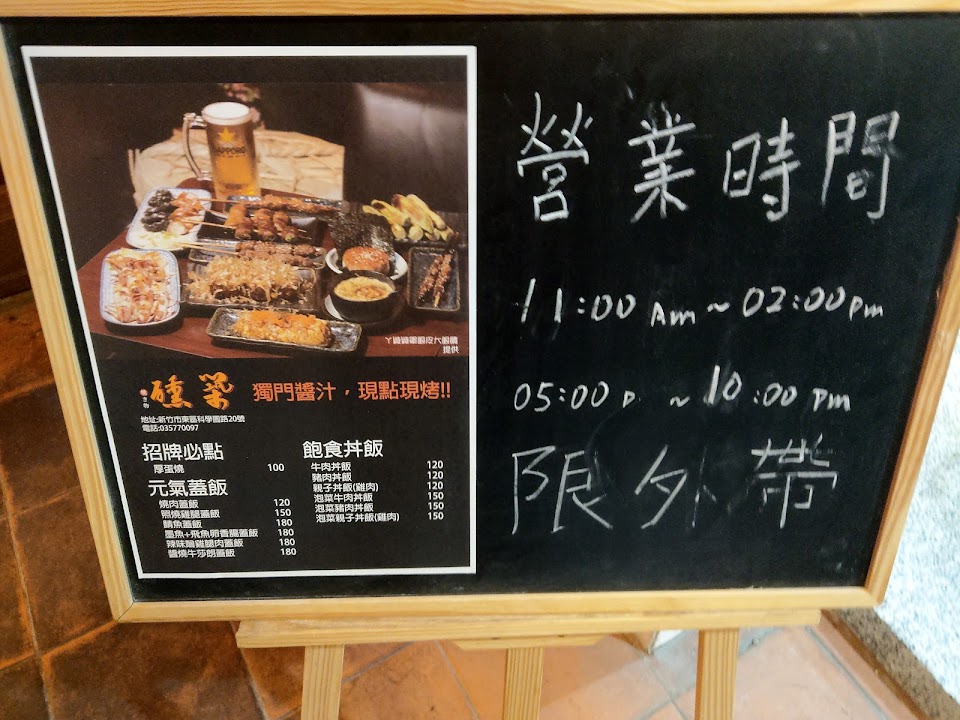 SAPPORO
提供
燻菊
獨門醬汁，現點現烤!!
地址:新竹市東區科學園路20號
電話:035770097
招牌必點
厚蛋燒 100
元氣蓋飯
燒肉蓋飯 120
照燒雞腿蓋飯 150
鯖魚蓋飯 180
墨魚+飛魚卵香腸蓋飯 180
辣味燒雞腿肉蓋飯 180
醬燒牛莎朗蓋飯 180
飽食丼飯
牛肉丼飯 120
豬肉丼飯 120
親子丼飯(雞肉) 120
泡菜牛肉丼飯 150
泡菜豬肉丼飯 150
泡菜親子丼飯(雞肉) 150
營業時間
11:00 Am ~ 02:00 Pm
05:00 P ~ 10:00 Pm
限外帶